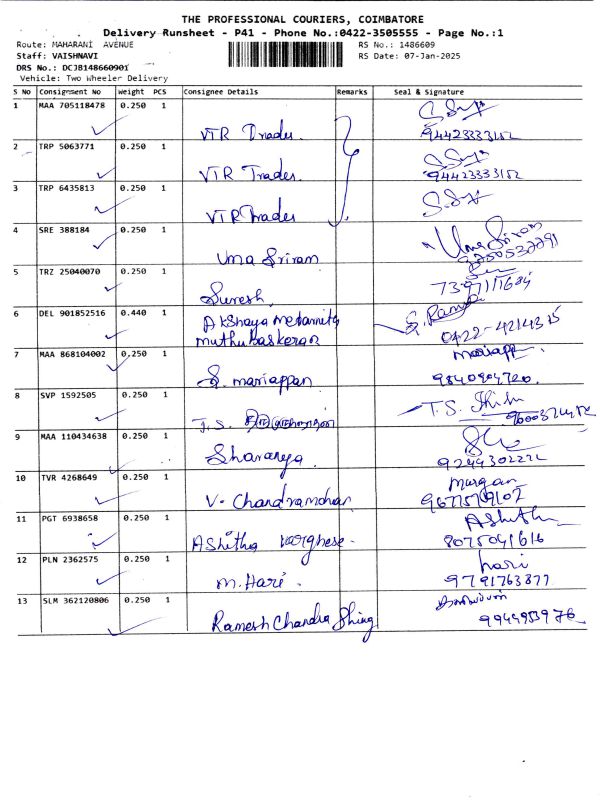 THE PROFESSIONAL COURIERS, COIMBATORE
Delivery Runsheet - P41 - Phone No.:0422-3505555 - Page No.:1
Route: MAHARANI AVENUE
RS No.: 1486609
Staff: VAISHNAVI
RS Date: 07-Jan-2025
DRS No.: DCJB148660901
Vehicle: Two Wheeler Delivery
S No Consignment No Weight PCS Consignee Details Remarks Seal & Signature
1 MAA 705118478 0.250 1
VTR Traders. 94423333152
2 TRP 5063771 0.250 1
VTR Traders. 94423333152
3 TRP 6435813 0.250 1
VTR Traders
4 SRE 388184 0.250 1
Uma Sriram Uma Sriram
5 TRZ 25040070 0.250 1
Suresh.
6 DEL 901852516 0.440 1
Akshaya
muthubaskaran 0422-4214315
7 MAA 868104002 0.250 1 mariapp.
S. mariappan 9840904720.
8 SVP 1592505 0.250 1
T.S.
J.S.
9 MAA 110434638 0.250 1
Sharanya. 9244302222
10 TVR 4268649 0.250 1 murgan
V. Chandramohan
11 PGT 6938658 0.250 1
Ashitha varghese. 8075041616
12 PLN 2362575 0.250 1 hari
M. Hari. 9791763877
13 SLM 362120806 0.250 1
Ramesh Chandra Shing